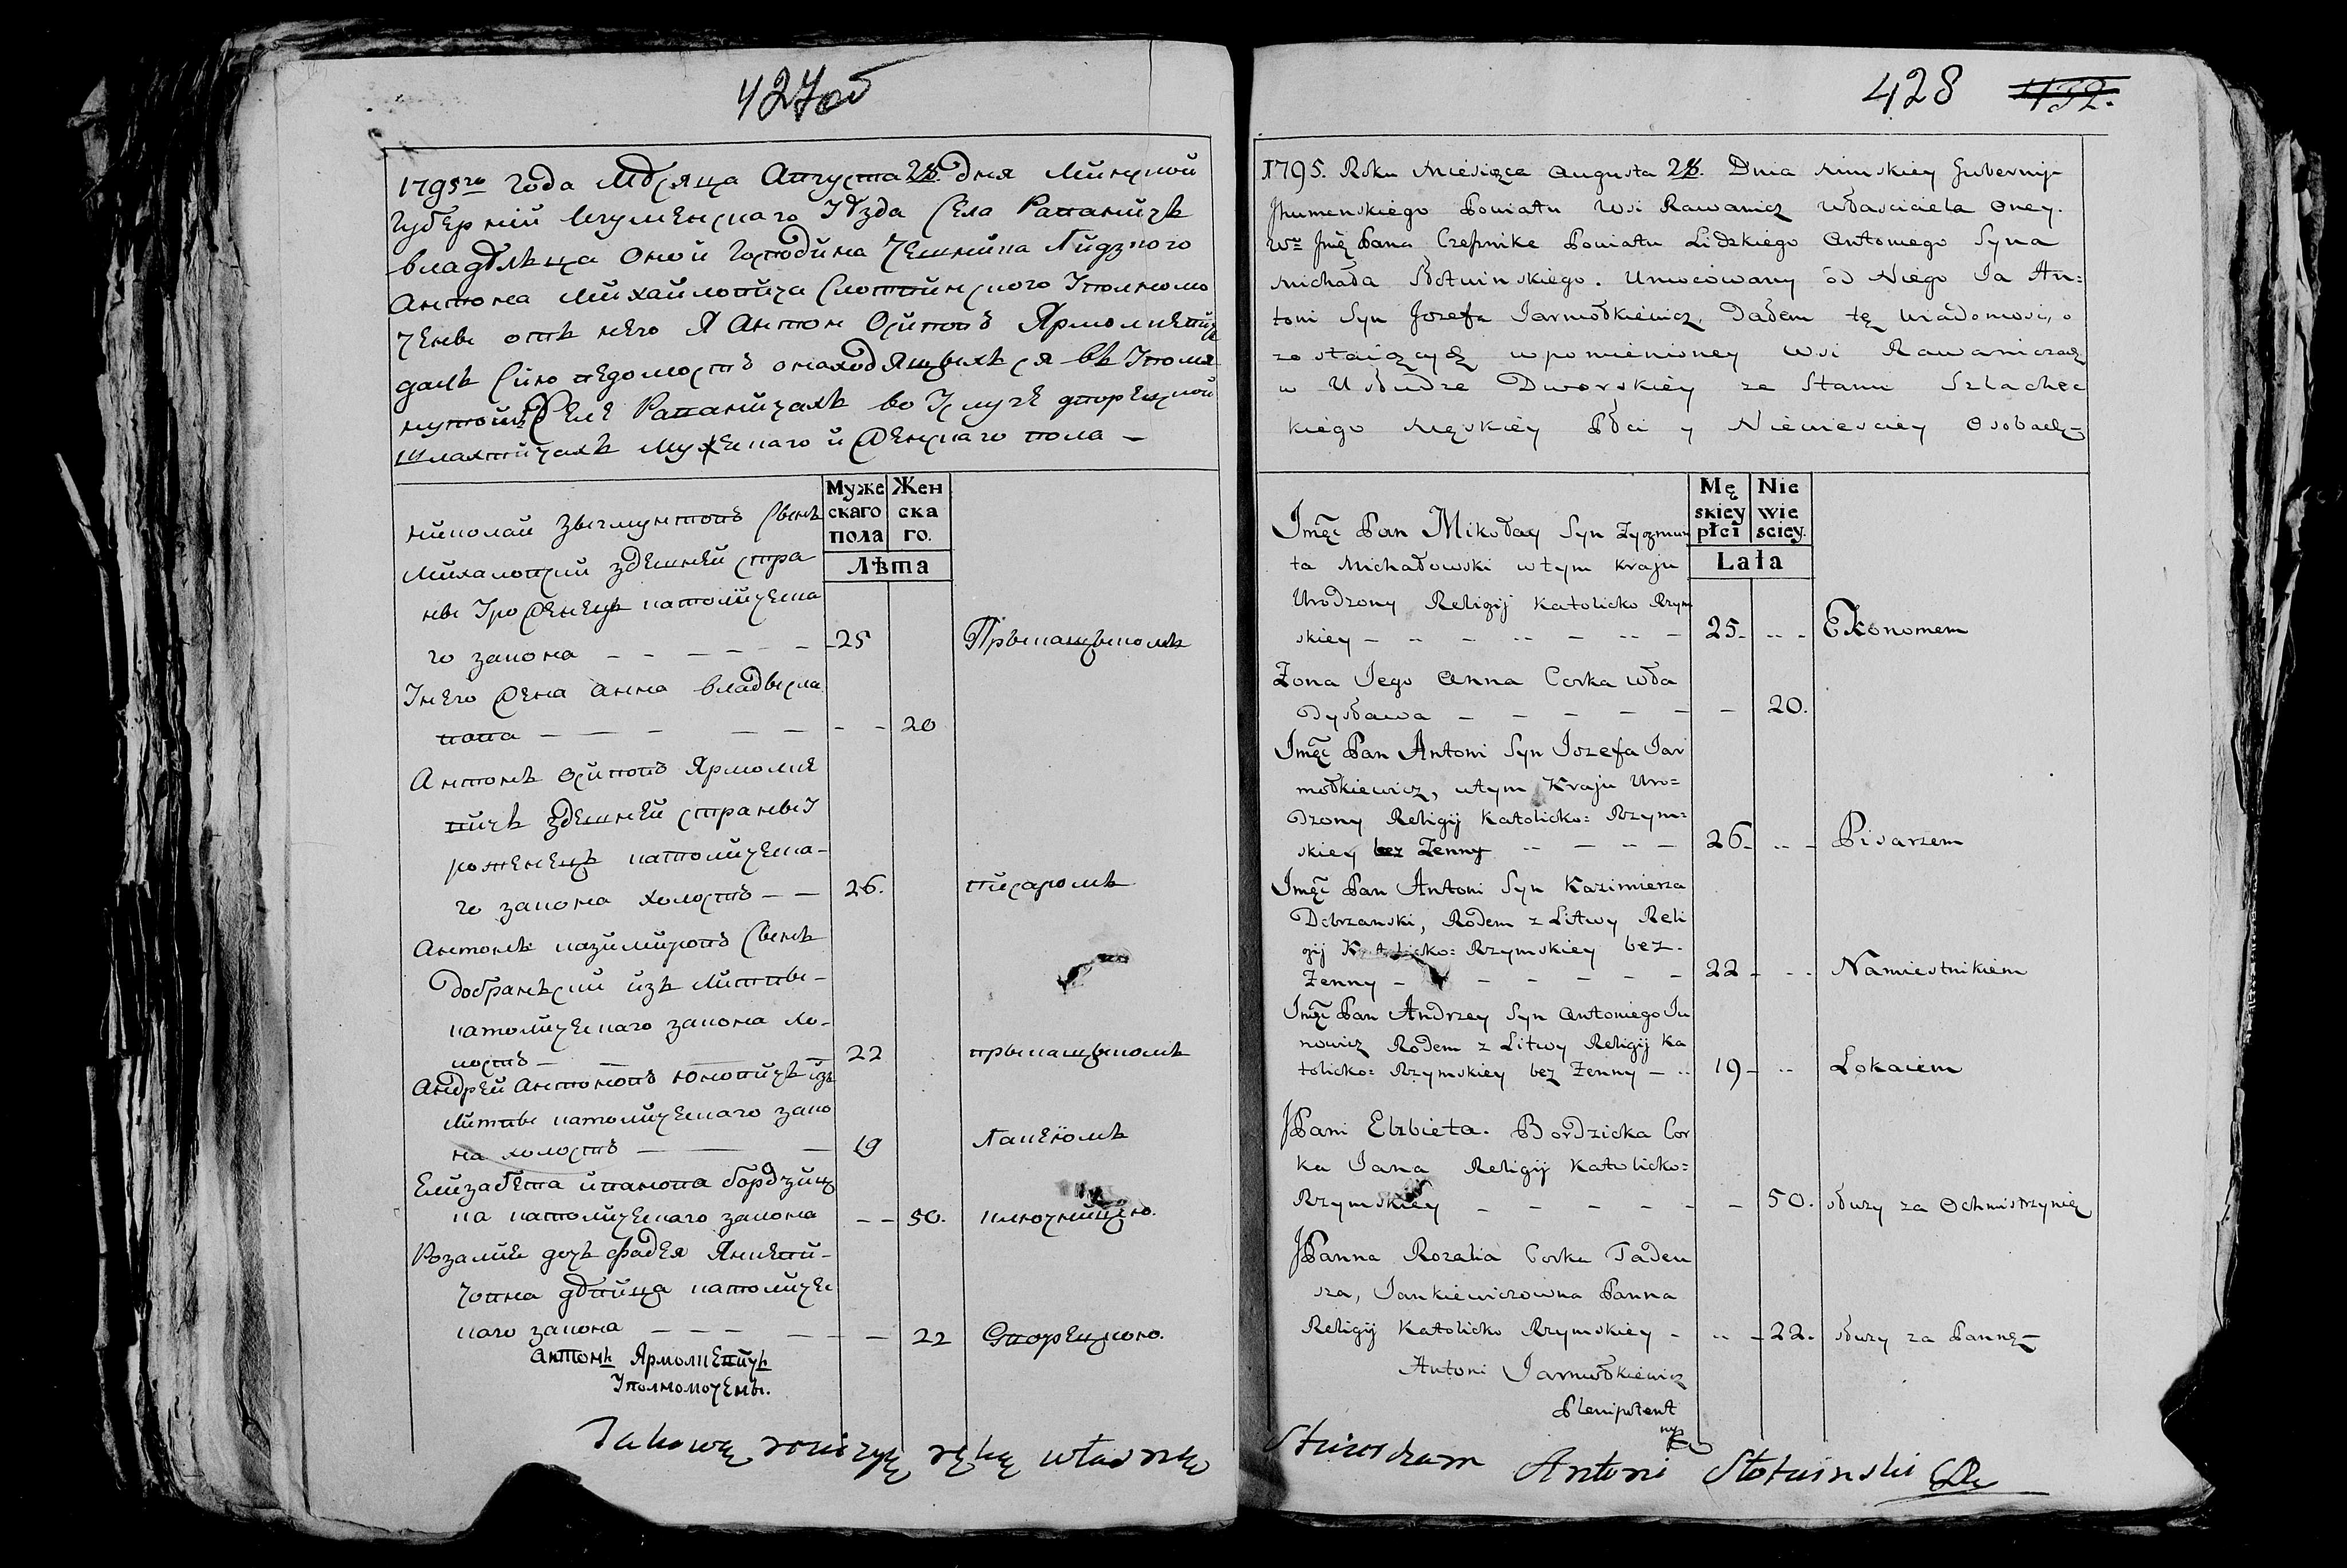 427об
1795го года Мѣсяца Августа 28. дня Минской
Губерніи Игуменскаго Уѣзда Села Раваничъ
владѣльца оной Господина Чешника Лидзкого
Антона Михайловича Слотвинского Уполномо
ченны отъ него Я Антонъ Осиповъ Ярмолкевичъ
далъ Сию ведомость о находящыхъся въ Упомя
нутой Селе Раваничахъ во Услуге дворенской
шляхтичахъ Мужескаго и Женскаго пола —
Муже
скаго
пола
Жен
ска
го.
Лѣта
Николай Зыгмунтовъ Сынъ
Михаловский здешней стра
ны Урожденецъ католическа
го закона — 25 Прыказчыкомъ
У него Жена Анна Владысла
вова — 20
Антонъ Осиповъ Ярмолке
вичъ здешней страны У
роженецъ католическа-
го закона холостъ — 26. писаромъ
Антонъ Казимировъ Сынъ
Добранский изъ Литвы-
католическаго закона хо-
лостъ — 22 прыкащыкомъ
Андрей Антоновъ Юновичъ изъ
Литвы католическаго зако
на холостъ — 19 Лакеіомъ
Елизабета Иванова Бордзиц
ка католическаго закона — 50. ключницею.
Розалия дочь Фадея Янкеви-
човна дѣвица католичес
каго закона — 22 Дворенскою.
Антонъ Ярмолкевичъ
Уполномочены.
Takową rewizyę ręką własną
428 432.
1795. Roku Miesiąca Augusta 28. Dnia Minskiey Gubernij-
Jhumenskiego Powiatu Wsi Rawanicz Własciciela Oney.
Wo Jmę Pana Czesnika Powiatu Lidzkiego Antoniego Syna
Michała Słotwinskiego. Umocowany od Niego Ja An=
toni Syn Jozefa Jarmołkiewicz, Dałem tę Wiadomosc, o
zostaiących w pomienioney Wsi Rawaniczach
w Usłudze Dworskiey ze Stanu Szlachec
kiego Męskiey Płci y Niewiesciey Osobach-
Mę
skiey
płci
Nie
wie
sciey.
Lata
Jmęć Pan Mikołay Syn Zygmun
ta Michałowski w tym kraju
Urodzony Religij Katolicko Rzym
skiey — 25. Ekonomem
Zona Jego Anna Corka Wła
Dysława — 20.
Jmęć Pan Antoni Syn Jozefa Jar
mołkiewicz, w tym Kraju Uro=
Dzony Religij Katolicko= Rzym=
skiey bez Zenny — 26 Pisarzem
Jmęć Pan Antoni Syn Kazimierza
Dobrzanski, Rodem z Litwy Reli
gij Katolicko= Rzymskiey bez.
Zenny — 22 Namiestnikiem
Jmęć Pan Andrzey Syn Antoniego Ju
nowicz Rodem z Litwy Religij Ka
tolicko= Rzymskiey bez Zenny — 19 Lokaiem
JPani Elzbieta. Bordzicka Cor
ka Jana Religij Katolicko=
Rzymskiey — 50. słuzy za Ochmistrzynię
JPanna Rozalia Corka Tadeu
sza, Jankiewiczowna Panna
Religij Katolicko Rzymskiey - 22. słuzy za Pannę—
Antoni Jarmołkiewicz
Plenipotent
mp
Stwierdzam Antoni Słotwinski